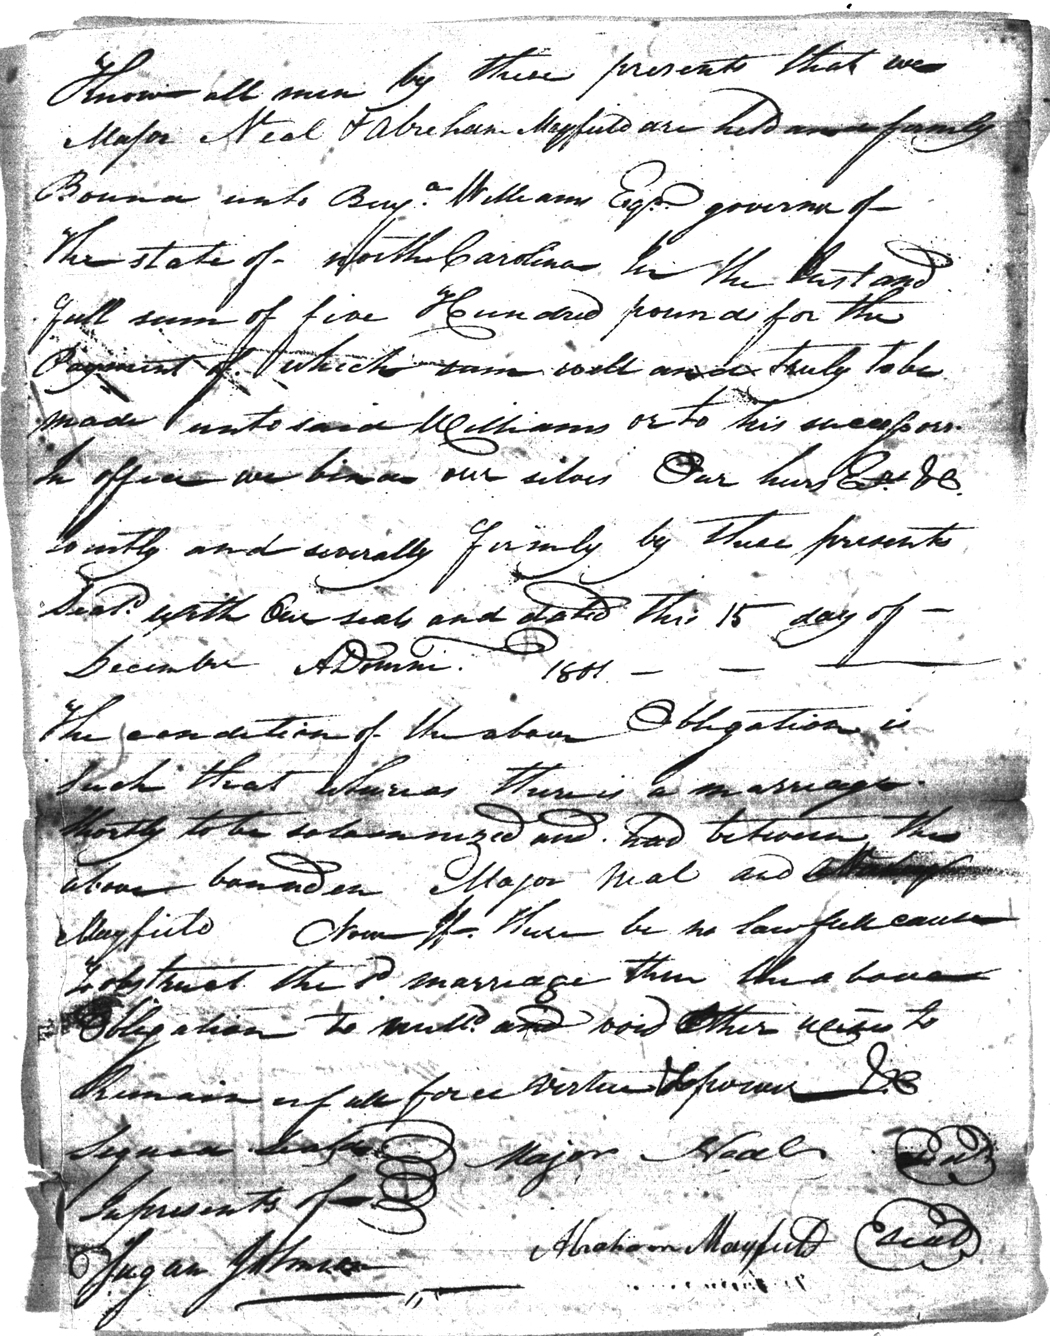 Know all men by these presents that we
Major Neal & Abraham Mayfield are held and firmly
Bound unto Benj.a Williams Esqr. governor of
the state of north Carolina In the Just and
full sum of five Hundred pounds for the
Payment of which sum well and truly to be
made unto said Williams or to his successors
In office we bind our selves Our heirs Exs &C.
jointly and severally firmly by these presents
Seal.d with Our seals and dated this 15 day of
December ADomini. 1801
The condition of the above Obligation is
Such that whereas there is a marriage
Shortly to be solemnized and had between the
above bounden Major Neal and
Mayfield Now If there be no lawfull cause
To obstruct the sd marriage then the above
Obligation to null.d and void Other wise to
Remain in full force virtue & power &C
Signed
In presents of Major Neal Seal
Johnson Abraham Mayfield Seal